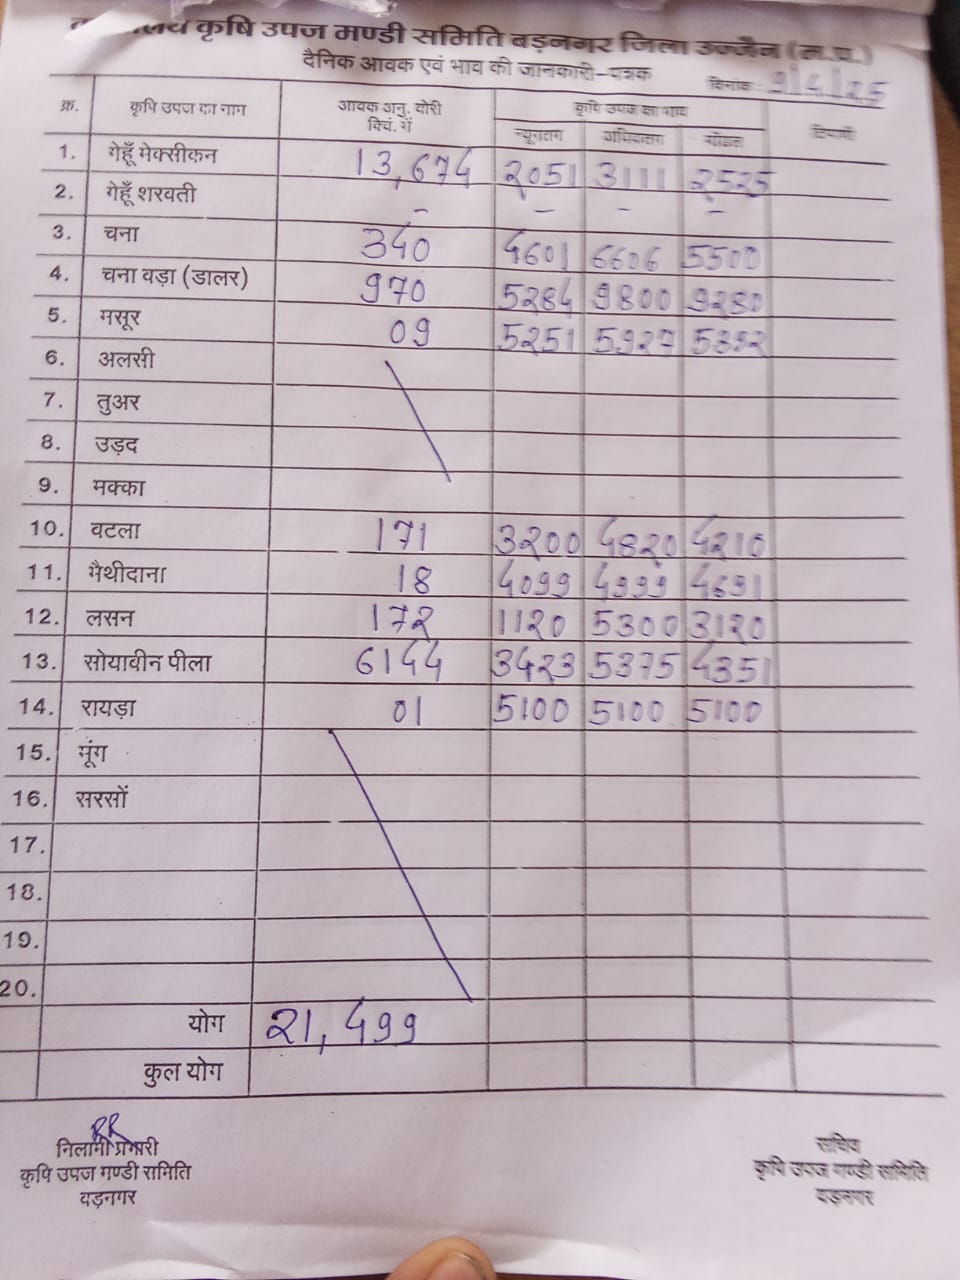 कृषि उपज मण्डी समिति बड़नगर जिला उज्जैन (म.प्र.)
दैनिक आवक एवं भाव की जानकारी-पत्रक
दिनांक: 9/4/25
क्र. कृषि उपज का नाम आवक अनु. बोरी क्विं. में कृषि उपज का भाव टिप्पणी
न्यूनतम अधिकतम मॉडल
1. गेहूँ मेक्सीकन 13,674 2051 3111 2525
2. गेहूँ शरबती - - - -
3. चना 340 4601 6606 5500
4. चना बड़ा (डालर) 970 5284 9800 9280
5. मसूर 09 5251 5927 5892
6. अलसी
7. तुअर
8. उड़द
9. मक्का
10. बटला 171 3200 4820 4210
11. मैथीदाना 18 4099 4999 4691
12. लसन 172 1120 5300 3120
13. सोयाबीन पीला 6144 3423 5375 4351
14. रायड़ा 01 5100 5100 5100
15. मूंग
16. सरसों
17.
18.
19.
20.
योग 21,499
कुल योग
RR
निलामी प्रभारी
कृषि उपज मण्डी समिति
बड़नगर
सचिव
कृषि उपज मण्डी समिति
बड़नगर